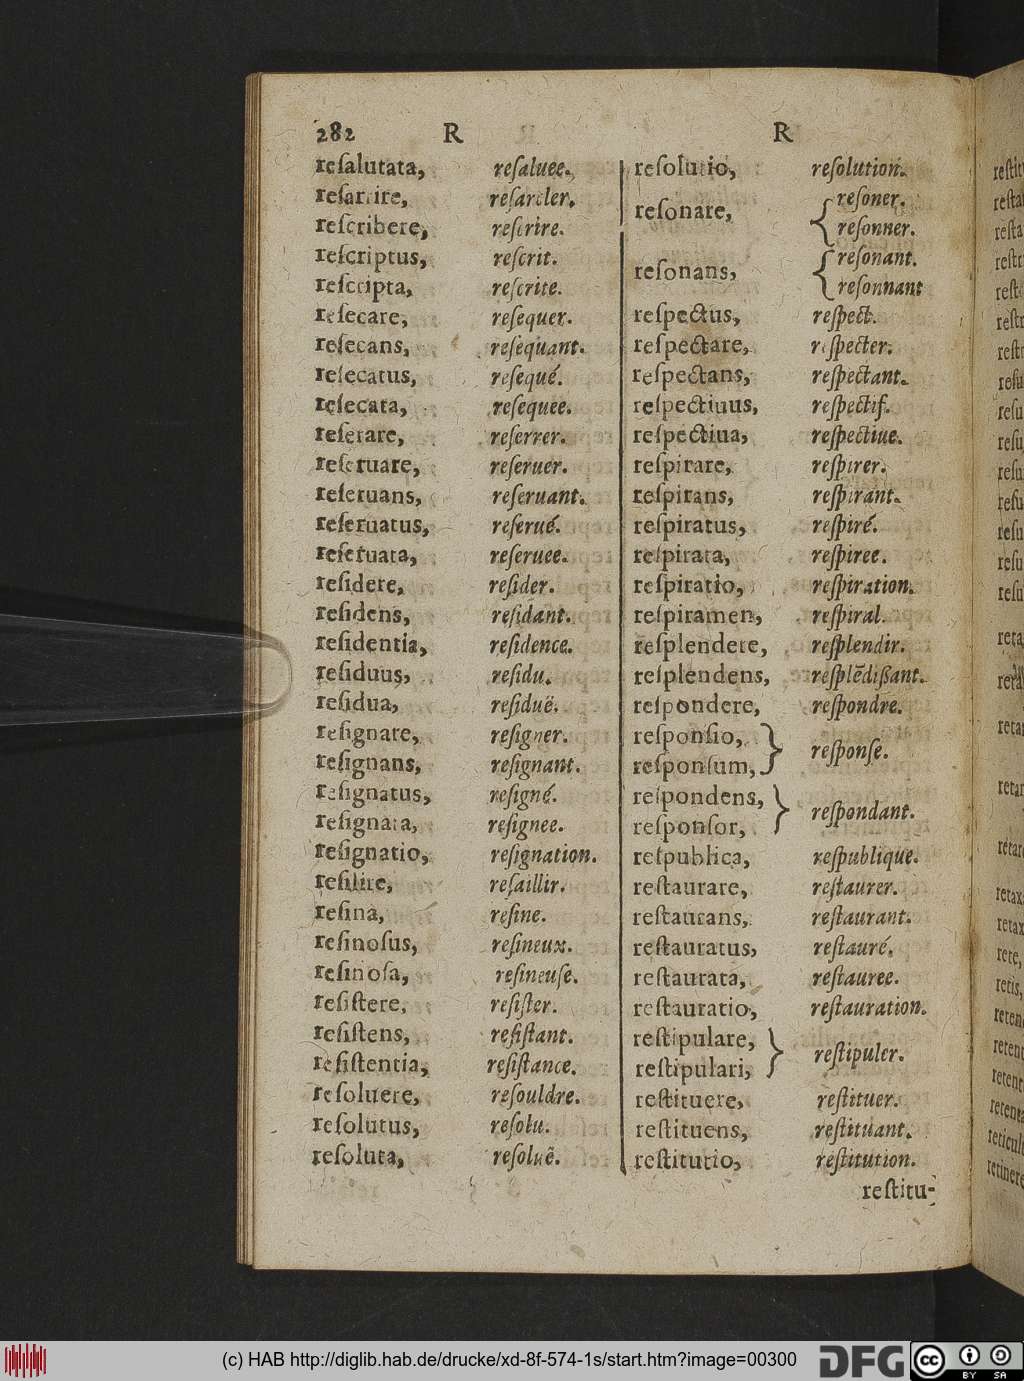 282 R R
reſalutata, reſaluee.
reſarcire, reſarcler.
reſcribere, reſcrire.
reſcriptus, reſcrit.
reſcripta, reſcrite.
reſecare, reſequer.
reſecans, reſequant.
reſecatus, reſequé.
reſecata, reſequee.
reſerare, reſerrer.
reſeruare, reſeruer.
reſeruans, reſeruant.
reſeruatus, reſerué.
reſeruata, reſeruee.
reſidere, reſider.
reſidens, reſidant.
reſidentia, reſidence.
reſiduus, reſidu.
reſidua, reſiduë.
reſignare, reſigner.
reſignans, reſignant.
reſignatus, reſigné.
reſignata, reſignee.
reſignatio, reſignation.
reſilire, reſaillir.
reſina, reſine.
reſinoſus, reſineux.
reſinoſa, reſineuſe.
reſiſtere, reſiſter.
reſiſtens, reſiſtant.
reſiſtentia, reſiſtance.
reſoluere, reſouldre.
reſolutus, reſolu.
reſoluta, reſoluë.
reſolutio, reſolution.
reſonare, { reſoner.
reſonner.
reſonans, { reſonant.
reſonnant
reſpectus, reſpect.
reſpectare, reſpecter.
reſpectans, reſpectant.
reſpectiuus, reſpectif.
reſpectiua, reſpectiue.
reſpirare, reſpirer.
reſpirans, reſpirant.
reſpiratus, reſpiré.
reſpirata, reſpiree.
reſpiratio, reſpiration.
reſpiramen, reſpiral.
reſplendere, reſplendir.
reſplendens, reſplẽdißant.
reſpondere, reſpondre.
reſponſio,
reſponſum, } reſponſe.
reſpondens,
reſponſor, } reſpondant.
reſpublica, reſpublique.
reſtaurare, reſtaurer.
reſtaurans, reſtaurant.
reſtauratus, reſtauré.
reſtaurata, reſtauree.
reſtauratio, reſtauration.
reſtipulare,
reſtipulari, } reſtipuler.
reſtituere, reſtituer.
reſtituens, reſtituant.
reſtitutio, reſtitution.
reſtitu-
(c) HAB http://diglib.hab.de/drucke/xd-8f-574-1s/start.htm?image=00300
DFG
cc BY SA